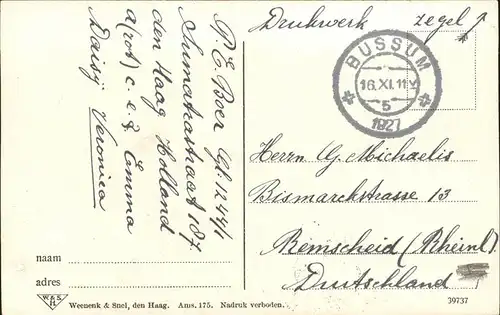 Drukwerk zegel ↑
BUSSUM
16.XI.11V
5
1927
P. E. Boer Gh. 1244/1
Sumatrastraat 187
den Haag Holland
a(rot) c. e. f. Emma
Daisij Veronica
Herrn G. Michaelis
Bismarckstrasse 13
Remscheid (Rheinl.)
Deutschland
naam
adres
W.&S.
H.
Weenenk & Snel, den Haag. Ams. 175. Nadruk verboden.
39737